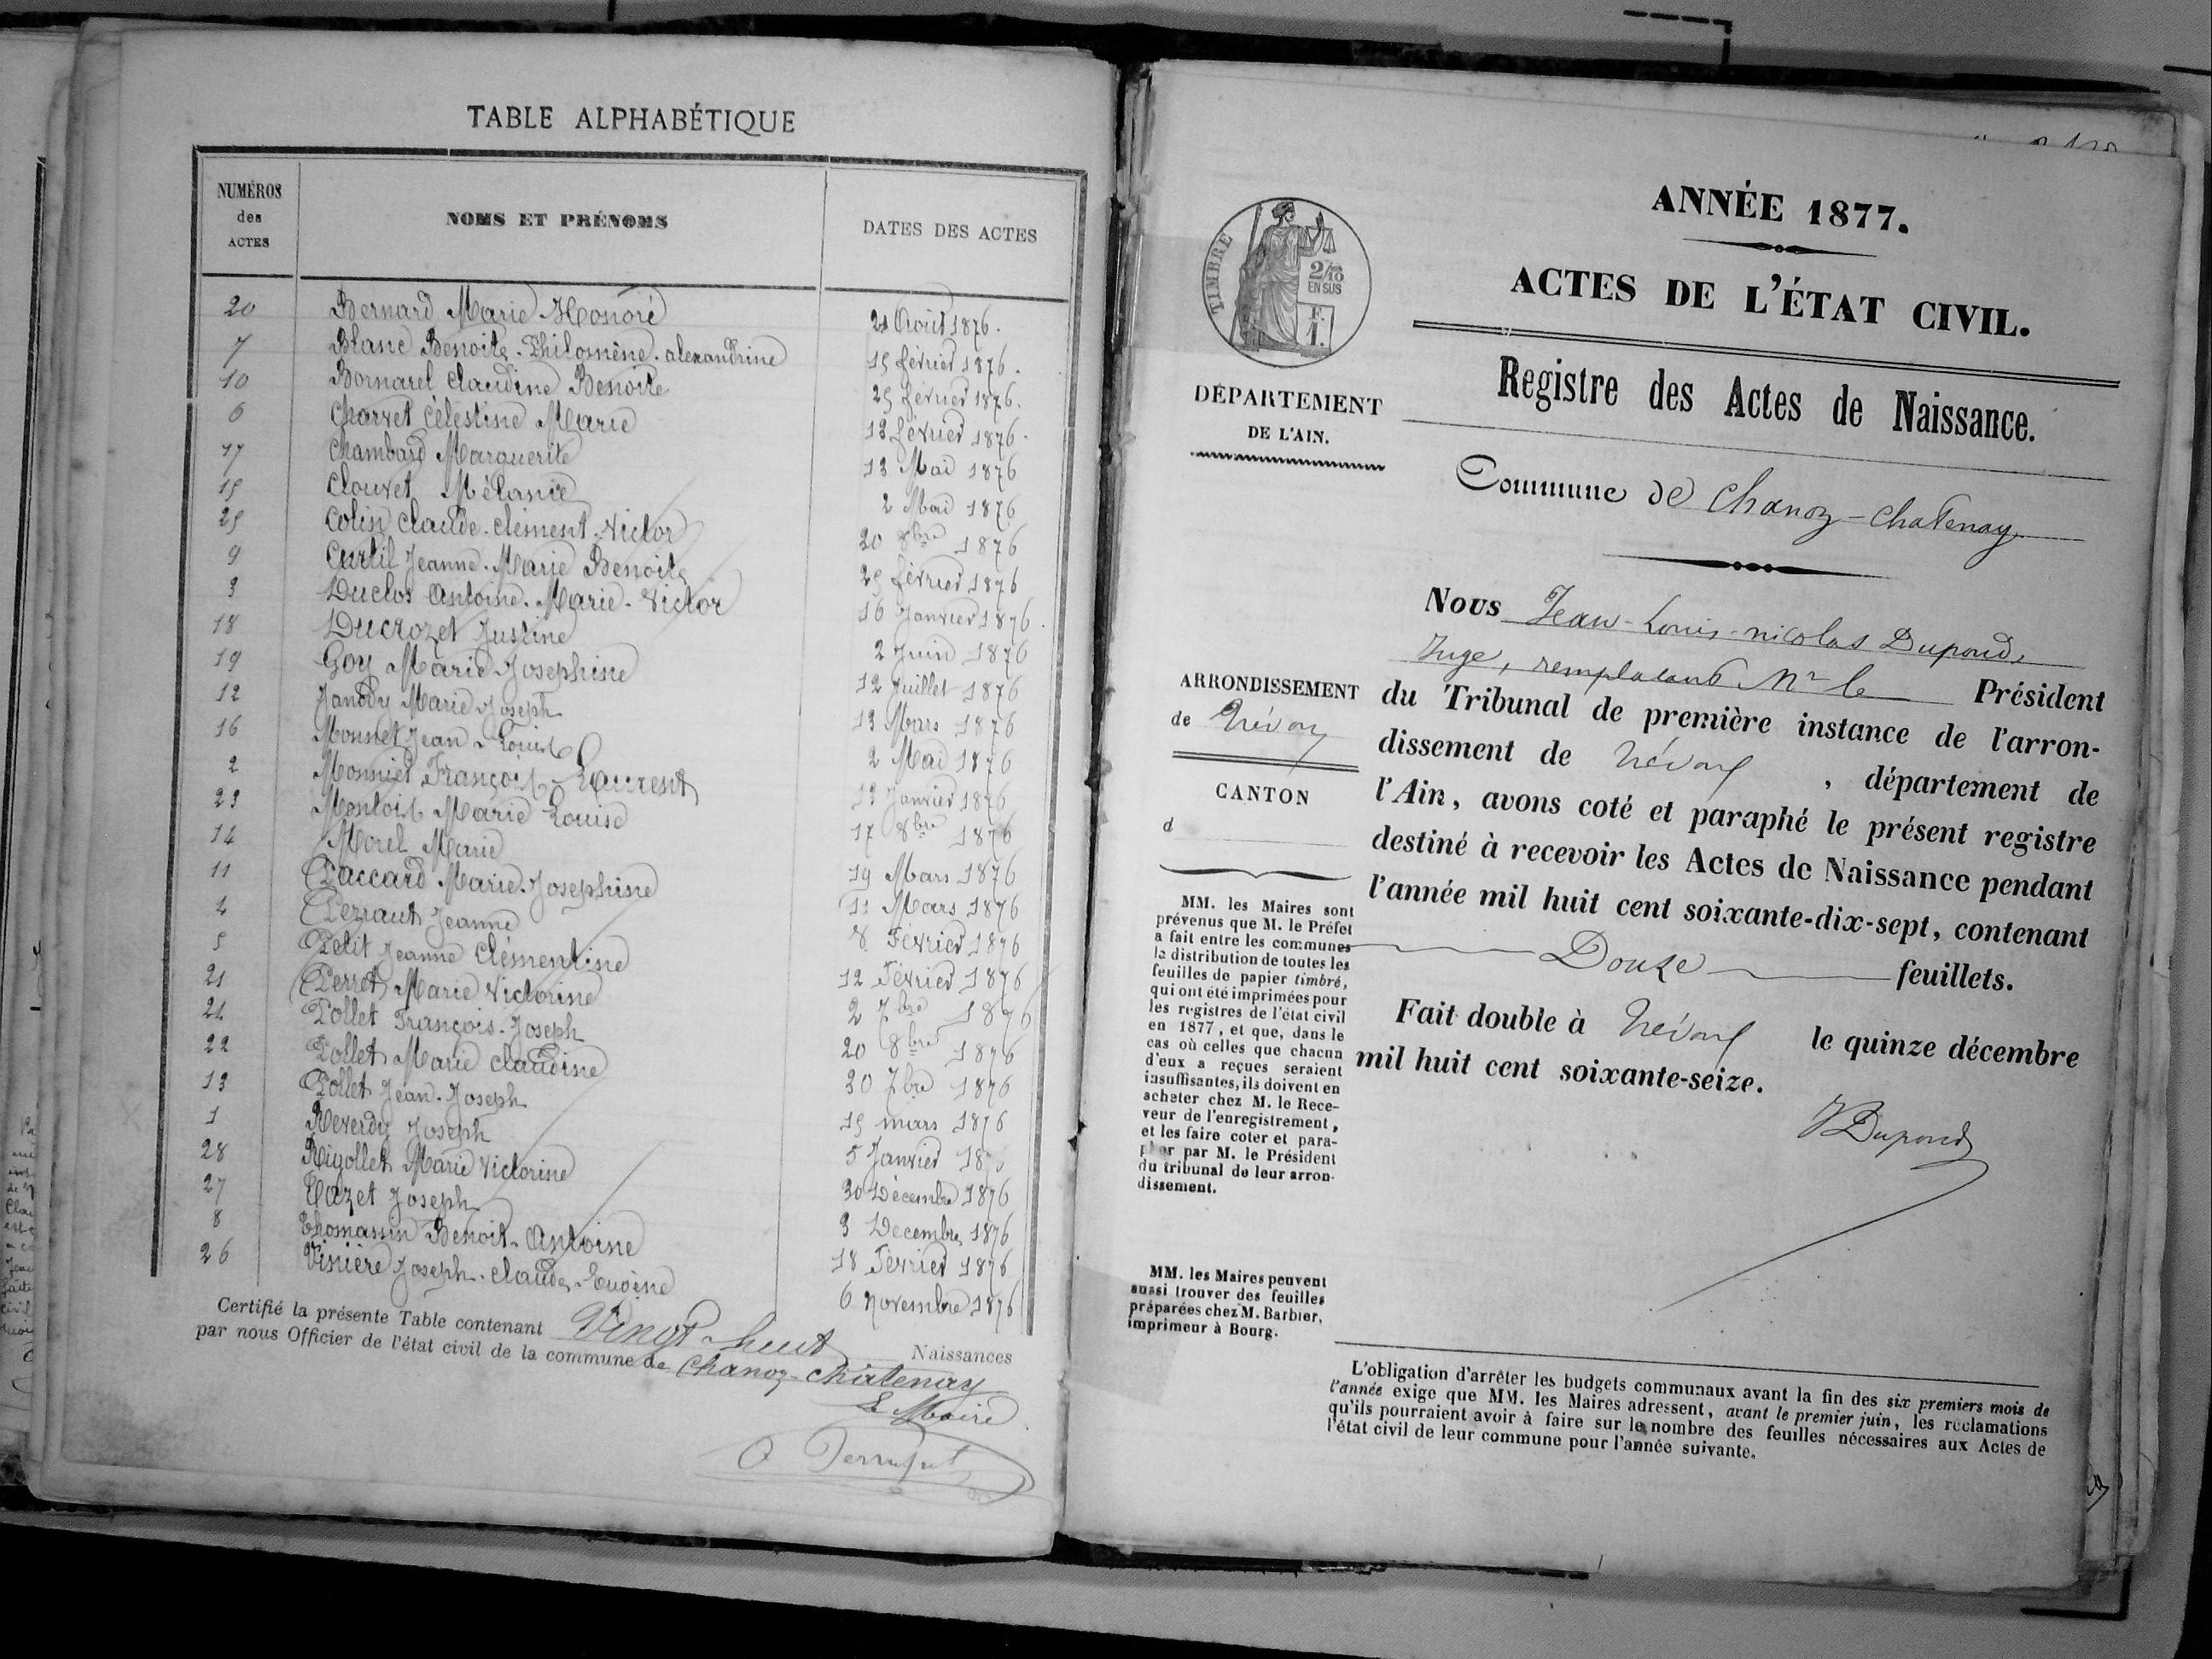 TABLE ALPHABÉTIQUE
NUMÉROS des ACTES
NOMS ET PRÉNOMS
DATES DES ACTES
20 Bernard Marie Honoré 21 Août 1876.
7 Blanc Benoite. Philomène. alexandrine 15 février 1876.
10 Bornarel Claudine Benoite 25 février 1876.
6 Charvet Célestine Marie 13 février 1876.
17 Chambard Marguerite 13 Mai 1876
15 Clouvet Mélanie 2 Mai 1876
25 Colin Claude. clément. Victor 20 8bre 1876
9 Curtil Jeanne. Marie Benoite 25 février 1876
3 Duclos Antoine. Marie. Victor 16 Janvier 1876.
18 Ducrozet Justine 2 Juin 1876
19 Goy Marie Josephine 12 Juillet 1876
12 Janody Marie Joseph 13 Mars 1876
16 Monnet Jean Louis 2 Mai 1876
2 Monnier François Laurent 13 Janvier 1876
23 Montoix Marie Louise 17 8bre 1876
14 Morel Marie 19 Mars 1876
11 Paccard Marie. Josephine 11 Mars 1876
4 Jeanne 8 Février 1876
5 Petit Jeanne Clémentine 12 Février 1876
21 Perret Marie Victorine 2 7bre 1876
24 Pollet François. Joseph 20 8bre 1876
22 Pollet Marie Claudine 30 7bre 1876
13 Pollet Jean. Joseph 15 mars 1876
1 Reverdy Joseph 5 Janvier 18
28 Rigollet Marie Victorine 30 Décembre 1876
27 Tazet Joseph 3 Decembre 1876
8 Thomassin Benoit. Antoine 18 Février 1876
26 Vinière Joseph. Claude Eugène 6 Novembre 1876
Certifié la présente Table contenant Vingt-huit Naissances
par nous Officier de l'état civil de la commune de Chanoz-Châtenay
Le Maire
ANNÉE 1877.
ACTES DE L'ÉTAT CIVIL.
Registre des Actes de Naissance.
Commune de Chanoz-Chatenay
TIMBRE
2/10
EN SUS
F.
1.
DÉPARTEMENT
DE L'AIN.
ARRONDISSEMENT
de Trévoux
CANTON
d
Nous Jean-Louis-nicolas Dupond,
Juge, remplacant Mr le Président
du Tribunal de première instance de l'arron-
dissement de Trévoux, département de
l'Ain, avons coté et paraphé le présent registre
destiné à recevoir les Actes de Naissance pendant
l'année mil huit cent soixante-dix-sept, contenant
Douze feuillets.
Fait double à Trévoux le quinze décembre
mil huit cent soixante-seize.
Dupond
MM. les Maires sont
prévenus que M. le Préfet
a fait entre les communes
la distribution de toutes les
feuilles de papier timbré,
qui ont été imprimées pour
les registres de l'état civil
en 1877, et que, dans le
cas où celles que chacun
d'eux a reçues seraient
insuffisantes, ils doivent en
acheter chez M. le Rece-
veur de l'enregistrement,
et les faire coter et para-
pher par M. le Président
du tribunal de leur arron-
dissement.
MM. les Maires peuvent
aussi trouver des feuilles
préparées chez M. Barbier,
imprimeur à Bourg.
L'obligation d'arrêter les budgets communaux avant la fin des six premiers mois de
l'année exige que MM. les Maires adressent, avant le premier juin, les réclamations
qu'ils pourraient avoir à faire sur le nombre des feuilles nécessaires aux Actes de
l'état civil de leur commune pour l'année suivante.